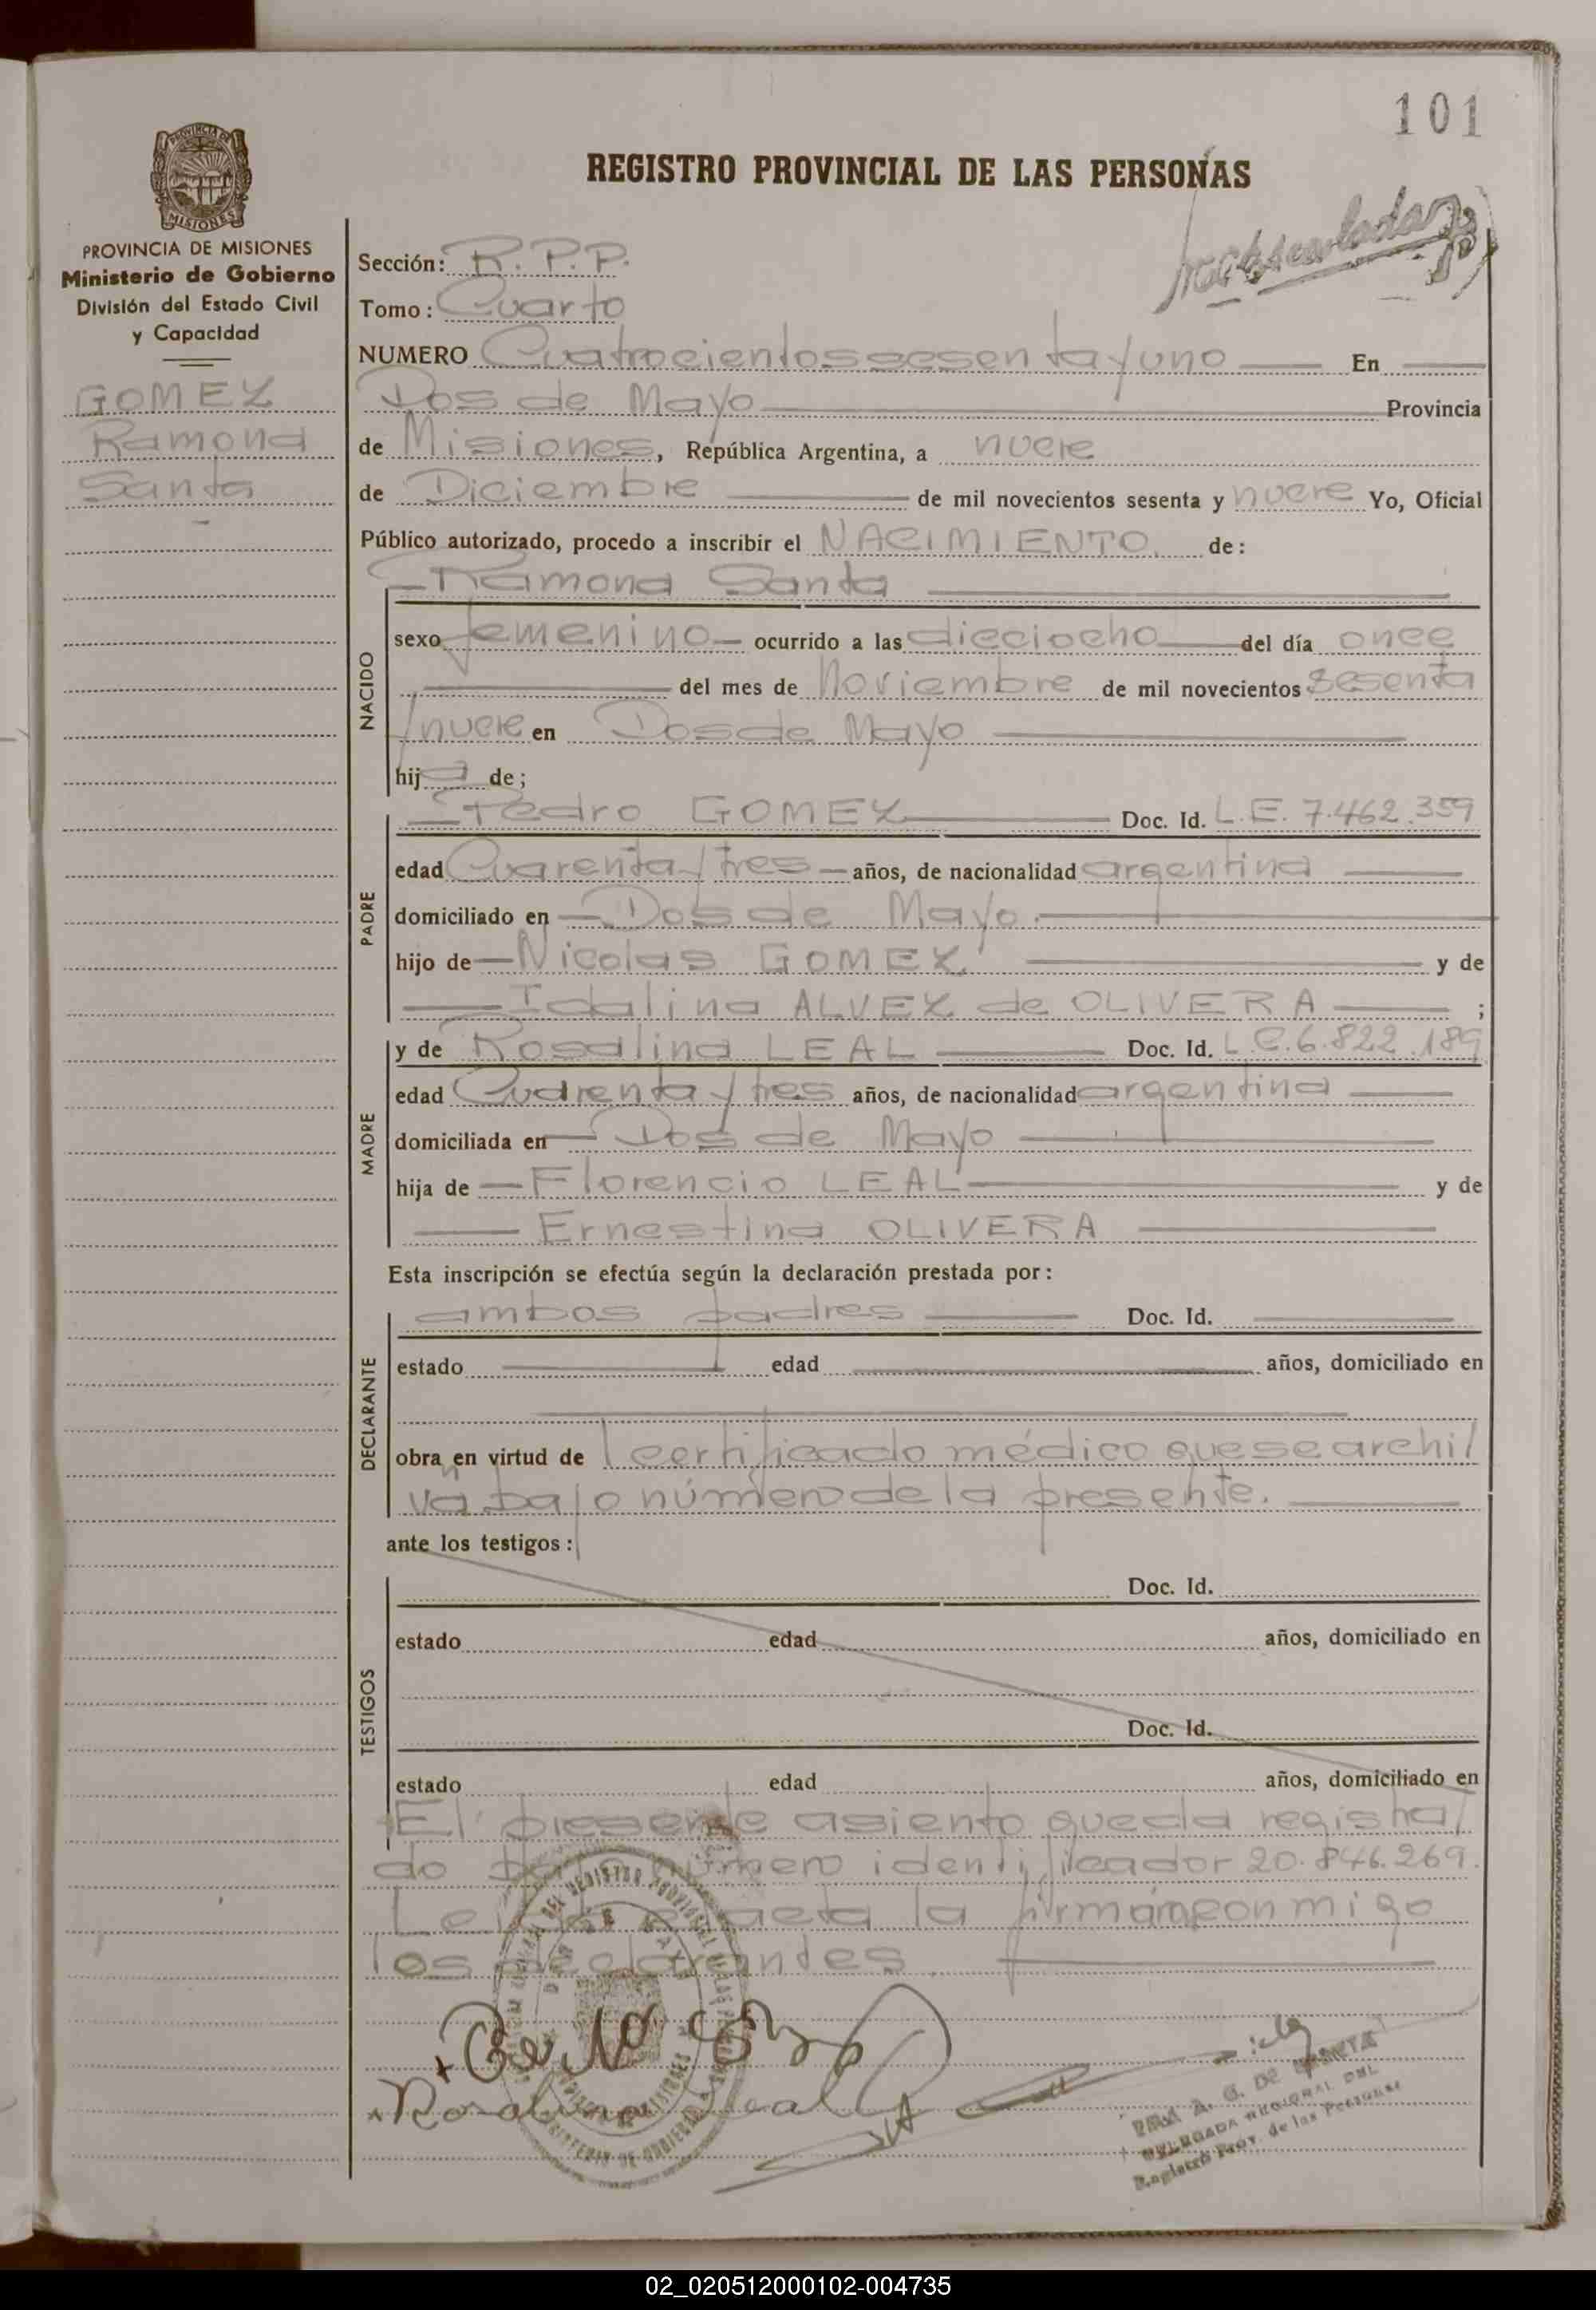 101
REGISTRO PROVINCIAL DE LAS PERSONAS
PROVINCIA DE MISIONES
Ministerio de Gobierno
División del Estado Civil
y Capacidad
GOMEZ
Ramona
Santa
Sección: R. P. P.
Tomo: Cuarto
NUMERO Cuatrocientos sesenta y uno En
Dos de Mayo Provincia
de Misiones, República Argentina, a nueve
de Diciembre de mil novecientos sesenta y nueve Yo, Oficial
Público autorizado, procedo a inscribir el NACIMIENTO de:
Ramona Santa
NACIDO
sexo femenino ocurrido a las dieciocho del día once
del mes de Noviembre de mil novecientos sesenta
y nueve en Dos de Mayo
hija de;
PADRE
Pedro GOMEZ Doc. Id. L.E. 7.462.359
edad Cuarenta y tres años, de nacionalidad argentina
domiciliado en Dos de Mayo.
hijo de Nicolas GOMEZ y de
Idalina ALVEZ de OLIVERA ;
MADRE
y de Rosalina LEAL Doc. Id. L.C. 6.822.189
edad Cuarenta y tres años, de nacionalidad argentina
domiciliada en Dos de Mayo
hija de Florencio LEAL y de
Ernestina OLIVERA
Esta inscripción se efectúa según la declaración prestada por:
DECLARANTE
ambos padres Doc. Id.
estado edad años, domiciliado en
obra en virtud de certificado médico que se archi
va bajo número de la presente.
ante los testigos:
TESTIGOS
Doc. Id.
estado edad años, domiciliado en
Doc. Id.
estado edad años, domiciliado en
El presente asiento queda registra
do bajo número identificador 20.846.269.
Leída el acta la firman conmigo
los declarantes.
Rosalina Leal
A. G. DE
DELEGADA REGIONAL DEL
Registro Prov. de las Personas
02_020512000102-004735